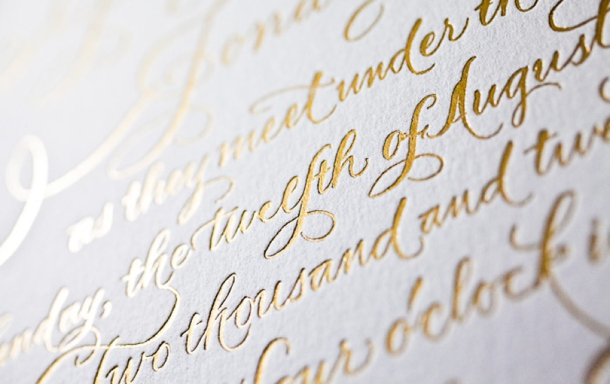 Jona
as they meet under th
unday, the twelfth of August
Two thousand and twe
four o'clock i